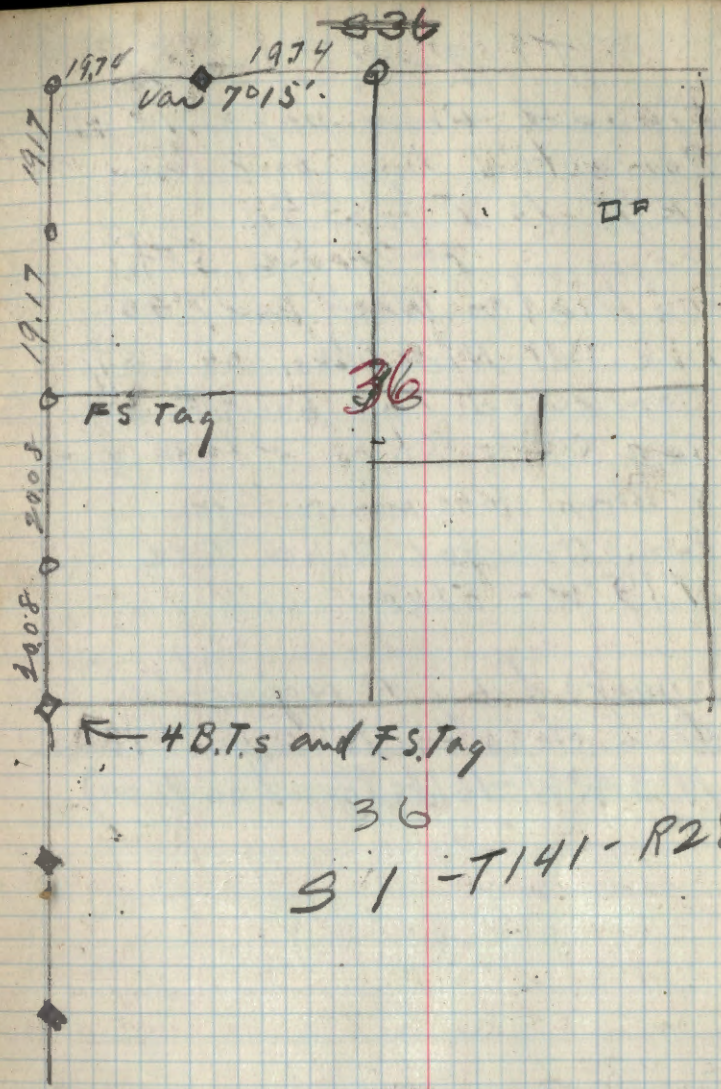 S 36
1974 1974
Var 7°15'.
1917
19.17
36
FS Tag
20.08
20.08
4 B.T.s and F.S. Tag
36
S 1 - T141 - R2